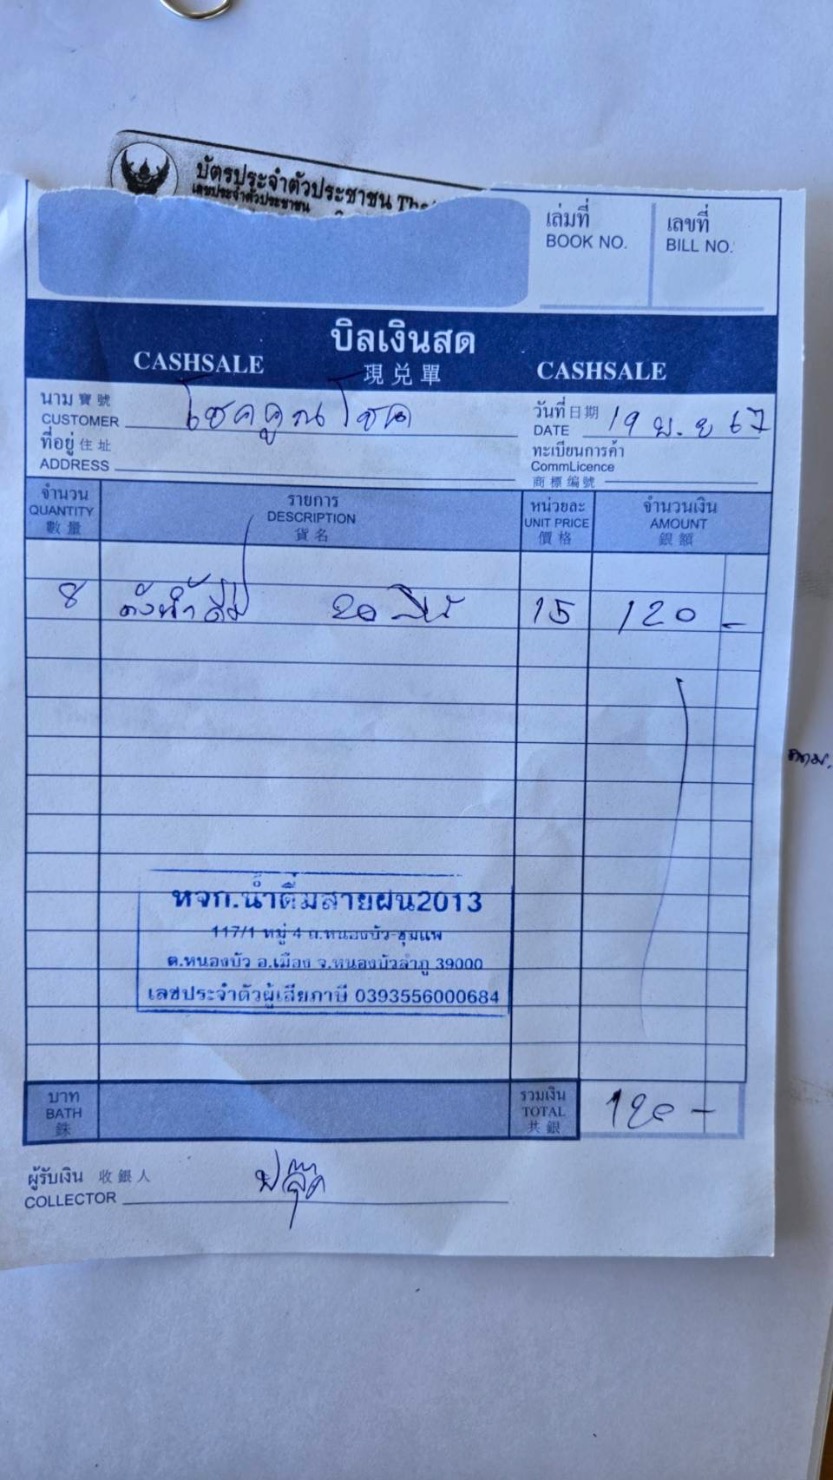 บัตรประจำตัวประชาชน
เลขประจำตัวประชาชน
เล่มที่
BOOK NO.
เลขที่
BILL NO.
บิลเงินสด
CASHSALE 現兑單 CASHSALE
นาม 寶號
CUSTOMER โชคคูณโชค
วันที่ 日期
DATE 19 พ.ย 67
ที่อยู่ 住址
ADDRESS
ทะเบียนการค้า
CommLicence
商標編號
จำนวน
QUANTITY
數量
รายการ
DESCRIPTION
貨名
หน่วยละ
UNIT PRICE
價格
จำนวนเงิน
AMOUNT
銀額
8 ถังน้ำดื่ม 20 ลิตร 15 120 -
หจก.น้ำดื่มสายฝน2013
117/1 หมู่ 4 ถ.หนองบัว-ชุมแพ
ต.หนองบัว อ.เมือง จ.หนองบัวลำภู 39000
เลขประจำตัวผู้เสียภาษี 0393556000684
บาท
BATH
銖
รวมเงิน
TOTAL
共銀
120 -
ผู้รับเงิน 收銀人
COLLECTOR